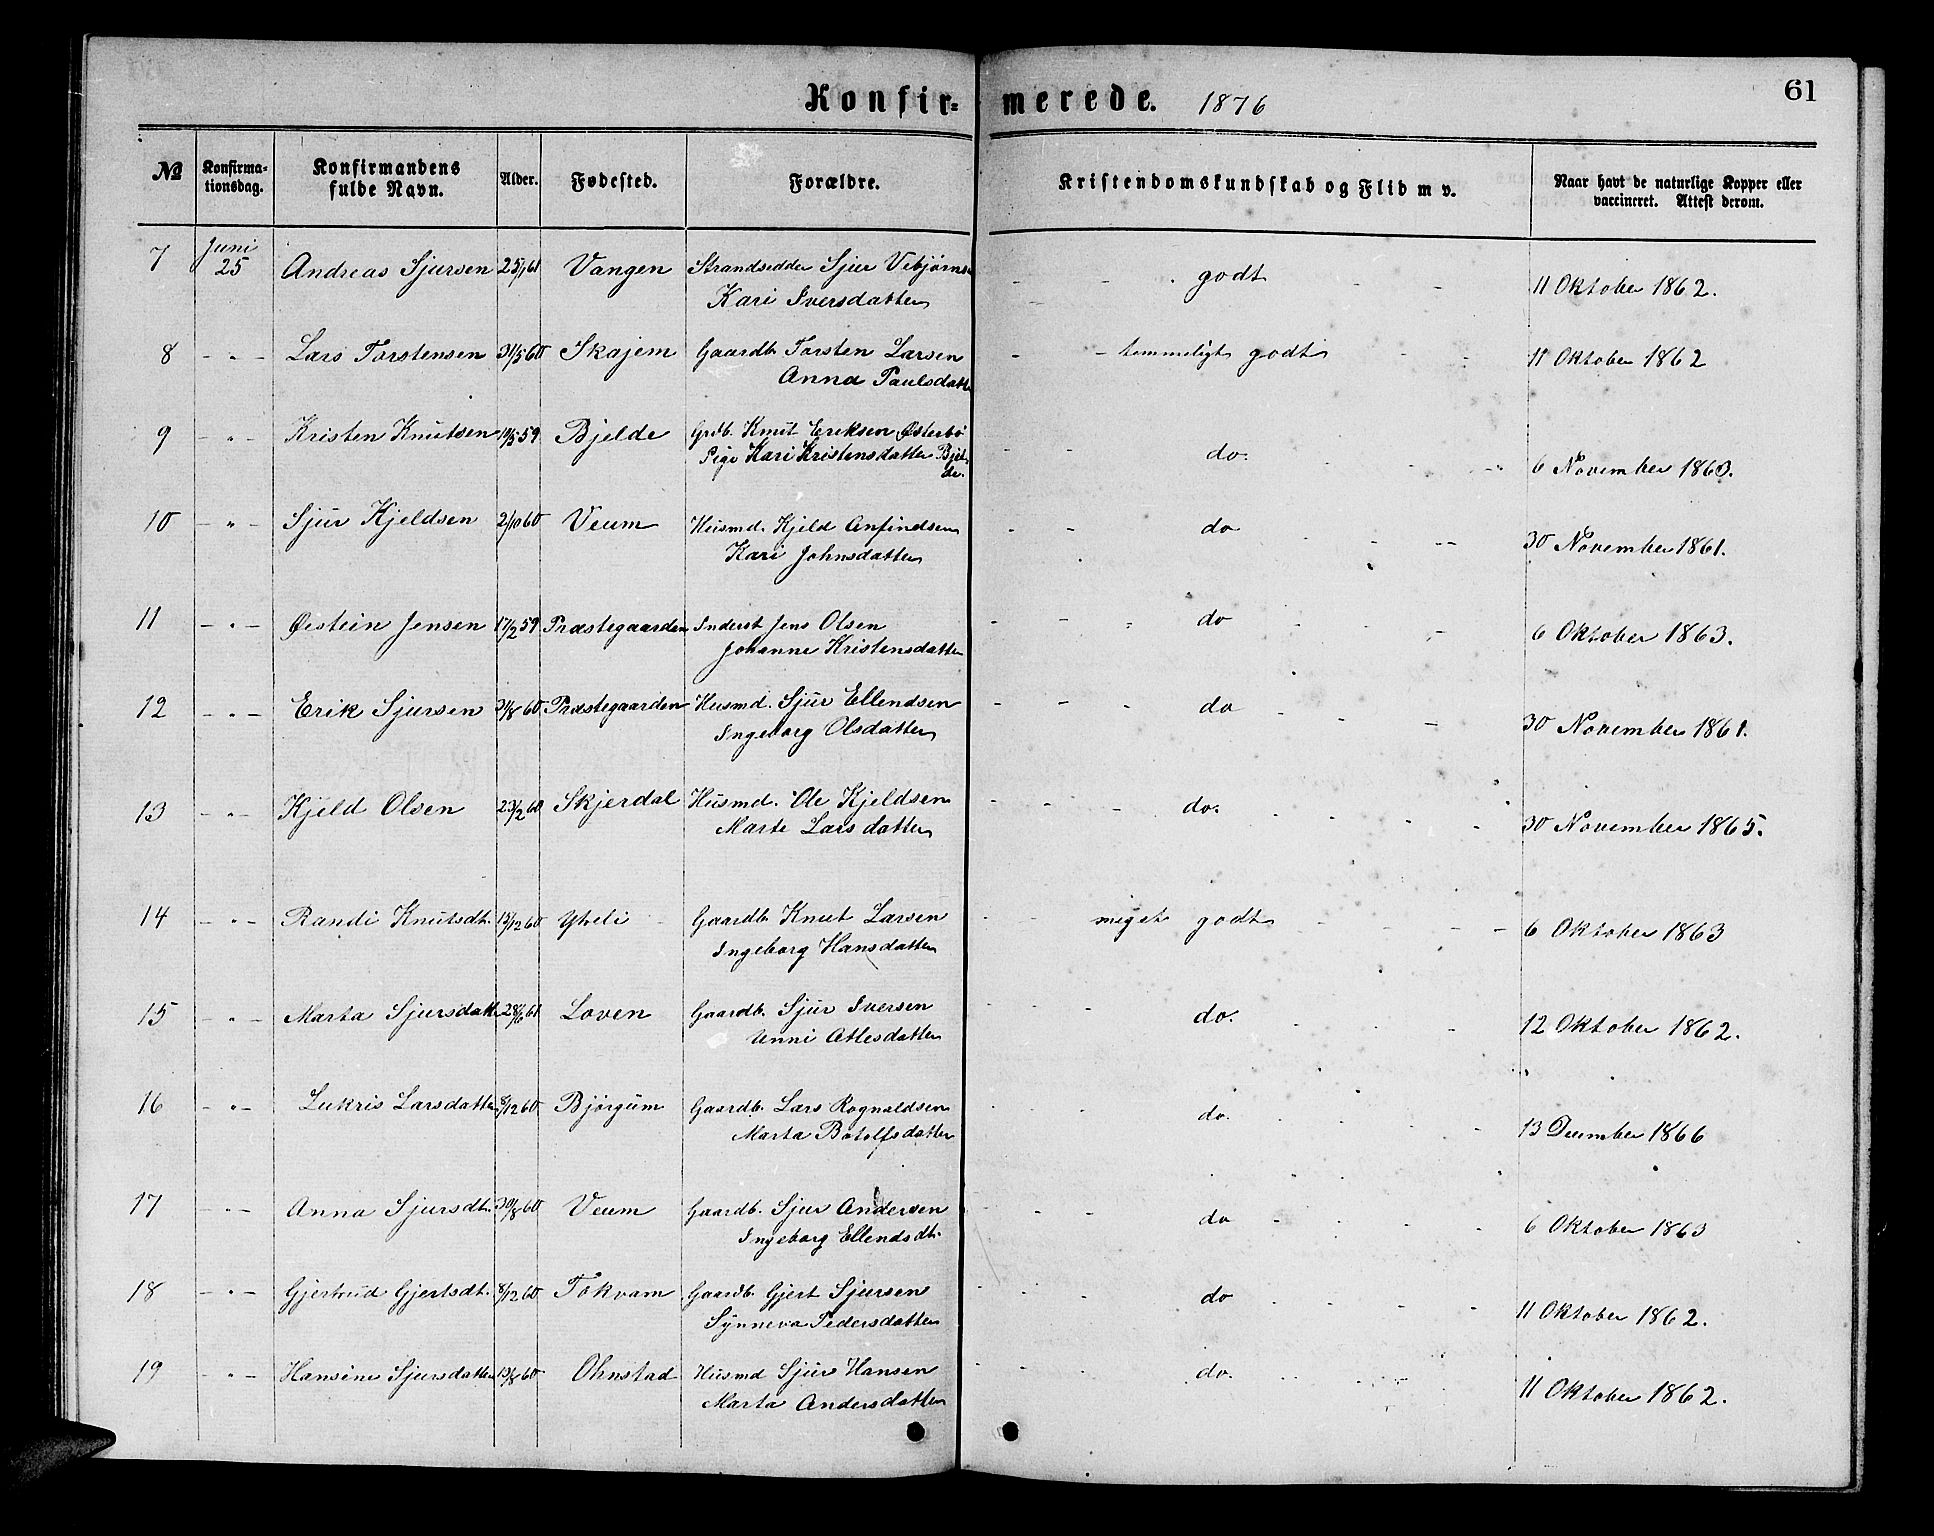 Konfirmerede. 1876 61
№ Konfirma-tionsdag. Konfirmandens fulde Navn. Alder. Fødested. Forældre. Kristendomskundskab og Flid m v. Naar havt de naturlige Kopper eller vaccineret. Attest derom.
7 Juni 25 Andreas Sjursen 25/1 61 Vangen Strandsidder Sjur Vebjørns - - . godt - - 11 Oktober 1862.
Kari Iversdatter
8 - " - Lars Torstensen 31/5 60 Skajem Gaardb. Torsten Larsen - - temmeligt godt - - 11 Oktober 1862
Anna Paulsdatt
9 - " - Kristen Knutsen 19/5 59 Bjelde Grdb. Knut Eriksen Østerbø - - do. - - 6 November 1860.
Pige Kari Kristensdatter Bjel-
de.
10 - " - Sjur Kjeldsen 2/10 60 Veum Husmd. Kjeld Anfindsen - - do - - 30 November 1861.
Kari Johnsdatter
11 - " - Øistein Jensen 17/2 59 Præstegaarden Inderst Jens Olsen - - do - - 6 Oktober 1863.
Johanne Kristensdatter
12 - " - Erik Sjursen 31/8 60 Præstegaarden Husmd. Sjur Ellendsen - - do - - 30 November 1861.
Ingeborg Olsdatter
13 - " - Kjeld Olsen 23/2 60 Skjerdal Husmd. Ole Kjeldsen - - do. - - 30 November 1865.
Marte Larsdatter
14 - " - Randi Knutsdt. 13/12 60 Ytreli Gaardb. Knut Larsen - - meget godt - - 6 Oktober 1863
Ingeborg Hansdatter
15 - " - Marta Sjursdatt. 28/6 61 Loven Gaardb. Sjur Iversen - - do. - - 12 Oktober 1862.
Unni Atlesdatter
16 - " - Lukris Larsdatter 8/12 60 Bjørgum Gaardb. Lars Rognaldsen - - do. - - 13 December 1866
Marta Botolfsdatter
17 - " - Anna Sjursdt. 30/8 60 Veum Gaardb. Sjur Andersen - - do - - 6 Oktober 1863
Ingeborg Ellendsdt.
18 - " - Gjertrud Gjertsdt. 8/12 60 Tokvam Gaardb. Gjert Sjursen - - do - - 11 Oktober 1862.
Synneva Pedersdatter
19 - " - Hansine Sjursdatter 13/8 60 Ohnstad Husmd Sjur Hansen - - do. - - 11 Oktober 1862.
Marta Andersdatter